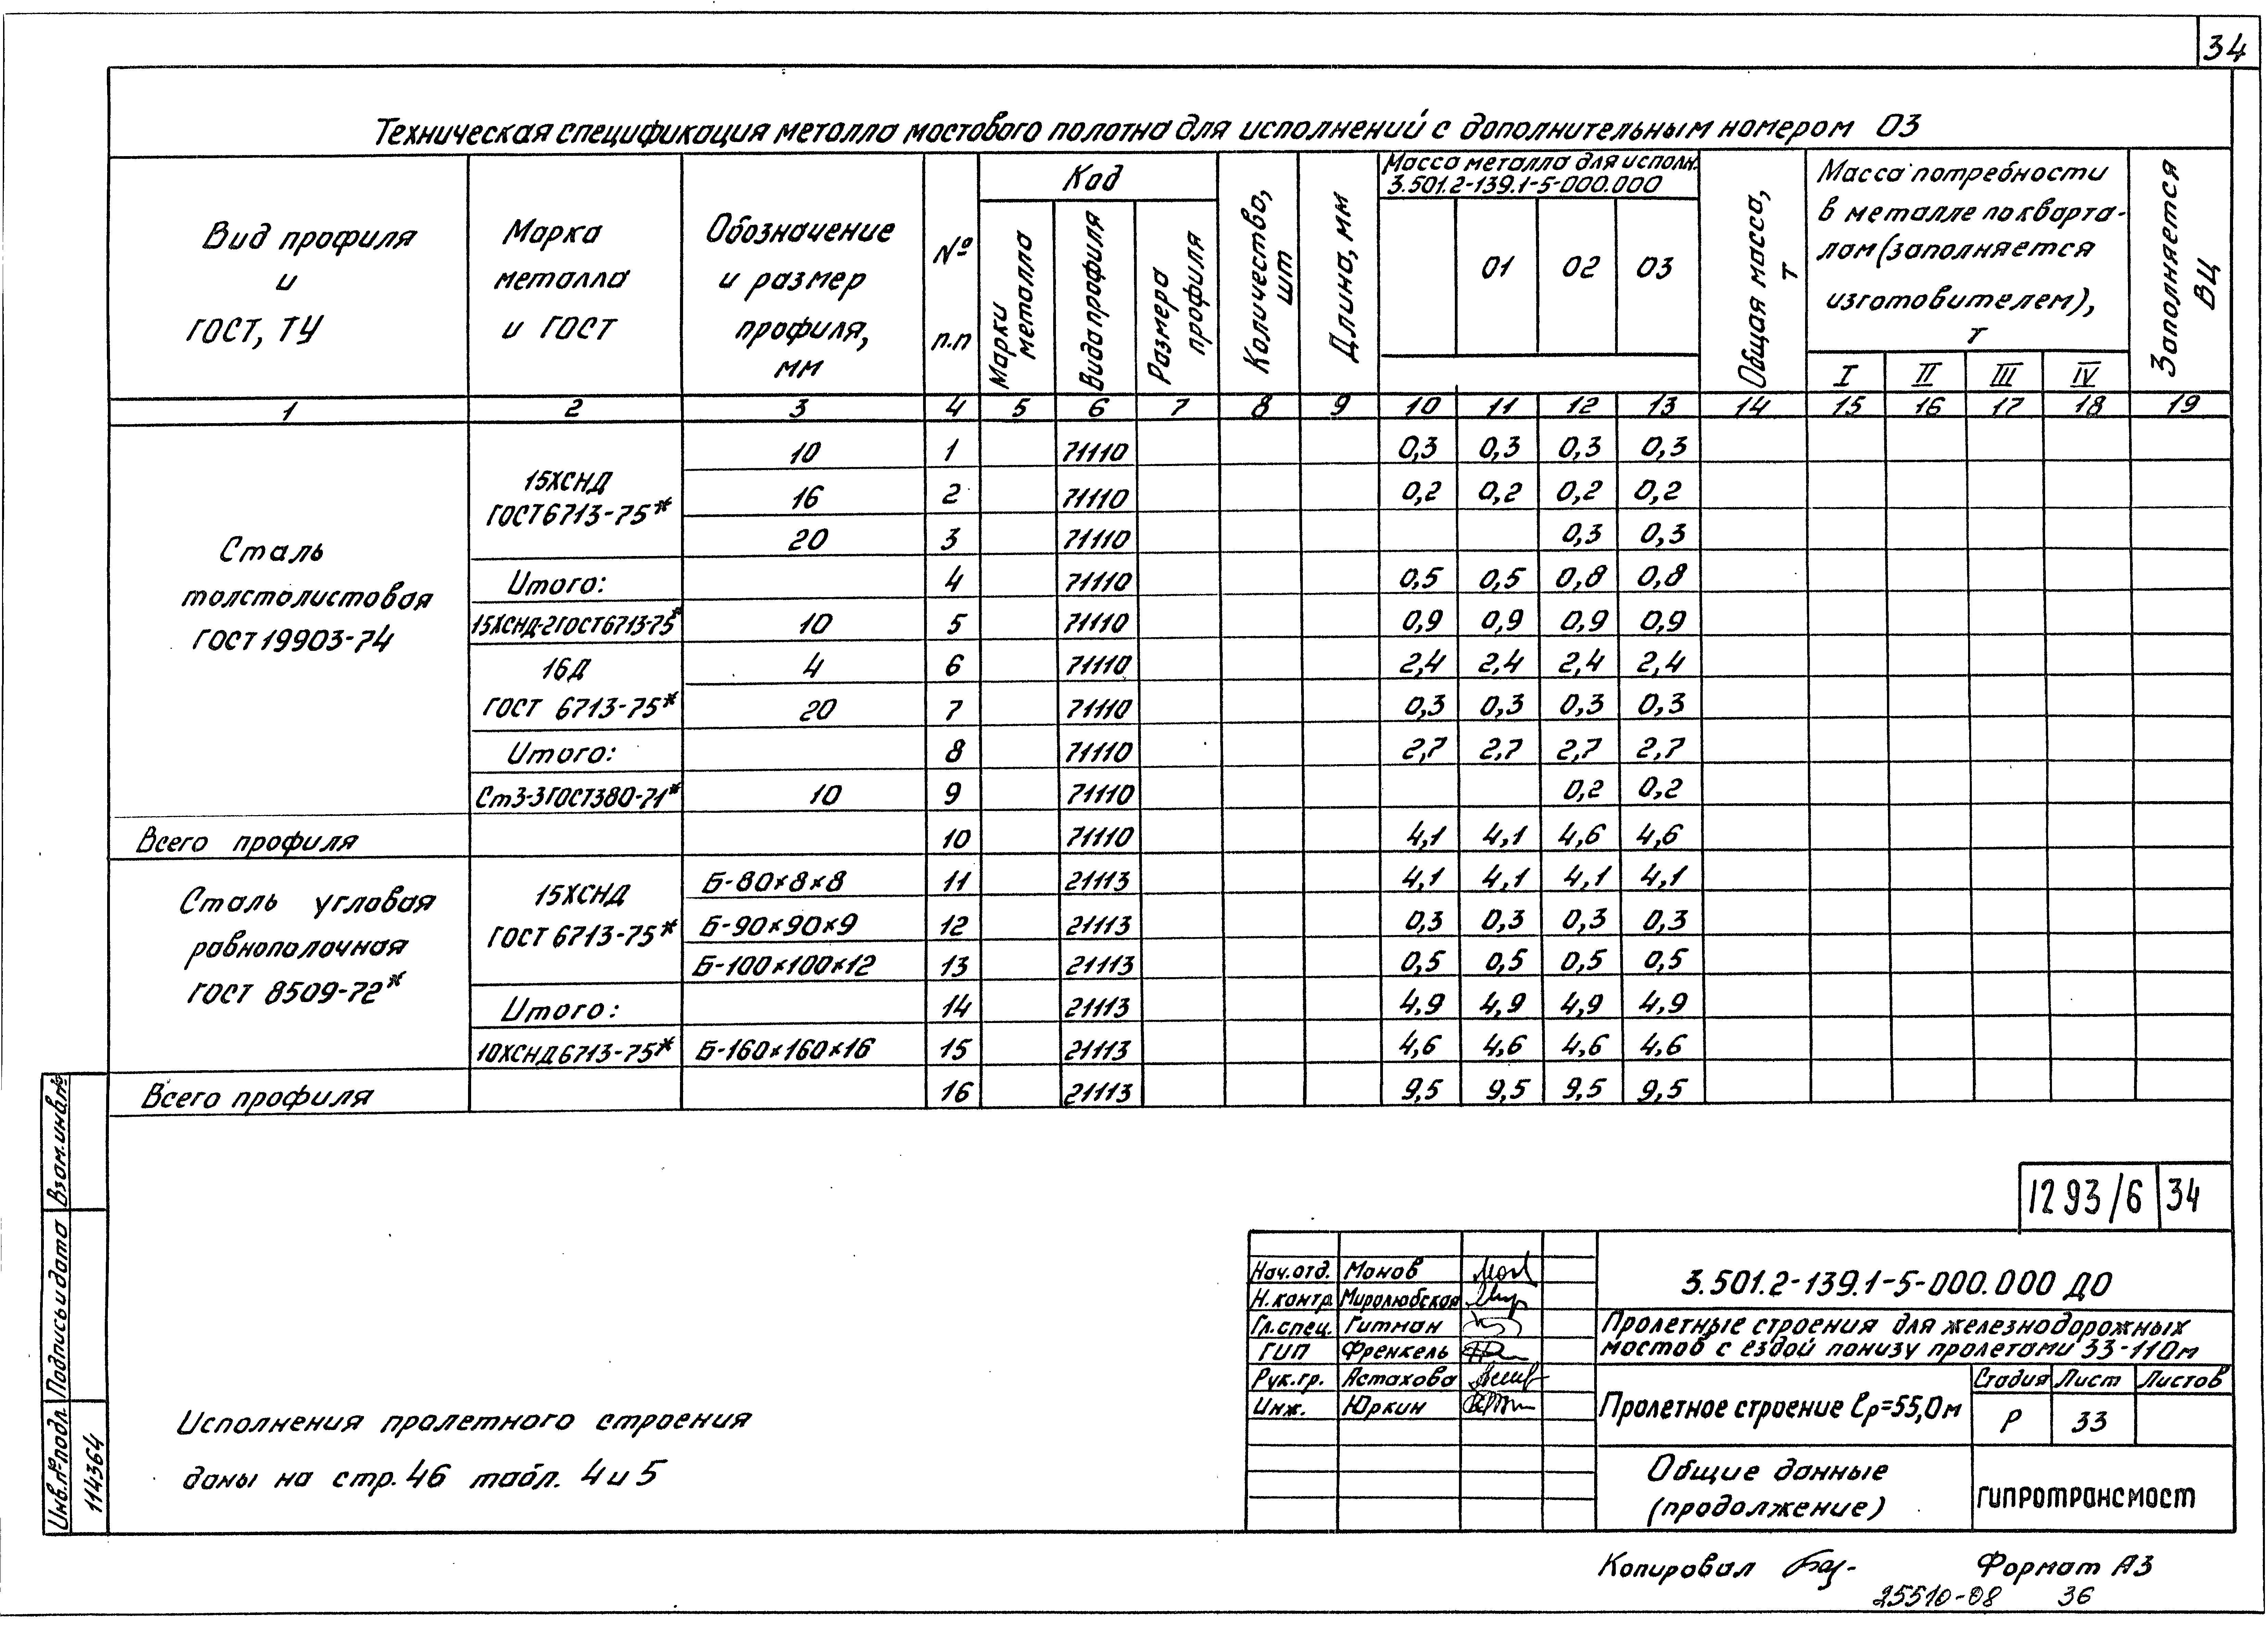 34
Техническая спецификация металла мостового полотна для исполнений с дополнительным номером 03
Вид профиля и ГОСТ, ТУ
Марка металла и ГОСТ
Обозначение и размер профиля, мм
№ п.п
Код
Марки металла
Вида профиля
Размера профиля
Количество, шт
Длина, мм
Масса металла для исполн.
3.501.2-139.1-5-000.000
01 02 03
Общая масса, т
Масса потребности
в металле по кварта-
лам (заполняется
изготовителем),
т
I II III IV
Заполняется ВЦ
1 2 3 4 5 6 7 8 9 10 11 12 13 14 15 16 17 18 19
Сталь
толстолистовая
ГОСТ 19903-74
15ХСНД
ГОСТ 6713-75*
10 1 71110 0,3 0,3 0,3 0,3
16 2 71110 0,2 0,2 0,2 0,2
20 3 71110 0,3 0,3
Итого: 4 71110 0,5 0,5 0,8 0,8
15ХСНД-2 ГОСТ 6713-75* 10 5 71110 0,9 0,9 0,9 0,9
16Д
ГОСТ 6713-75*
4 6 71110 2,4 2,4 2,4 2,4
20 7 71110 0,3 0,3 0,3 0,3
Итого: 8 71110 2,7 2,7 2,7 2,7
Ст3-3 ГОСТ 380-71* 10 9 71110 0,2 0,2
Всего профиля 10 71110 4,1 4,1 4,6 4,6
Сталь угловая
равнополочная
ГОСТ 8509-72*
15ХСНД
ГОСТ 6713-75*
Б-80×8×8 11 21113 4,1 4,1 4,1 4,1
Б-90×90×9 12 21113 0,3 0,3 0,3 0,3
Б-100×100×12 13 21113 0,5 0,5 0,5 0,5
Итого: 14 21113 4,9 4,9 4,9 4,9
10ХСНД 6713-75* Б-160×160×16 15 21113 4,6 4,6 4,6 4,6
Всего профиля 16 21113 9,5 9,5 9,5 9,5
Взам.инв.№
Подпись и дата
Инв.№ подл.
114364
Исполнения пролетного строения
даны на стр. 46 табл. 4 и 5
1293/6 34
Нач.отд. Монов
Н.контр. Миролюбская
Гл.спец. Гитман
ГИП Френкель
Рук.гр. Астахова
Инж. Юркин
3.501.2-139.1-5-000.000 ДО
Пролетные строения для железнодорожных
мостов с ездой понизу пролетами 33-110м
Пролетное строение lр=55,0м
Стадия Лист Листов
Р 33
Общие данные
(продолжение)
ГИПРОТРАНСМОСТ
Копировал
Формат А3
25510-08 36